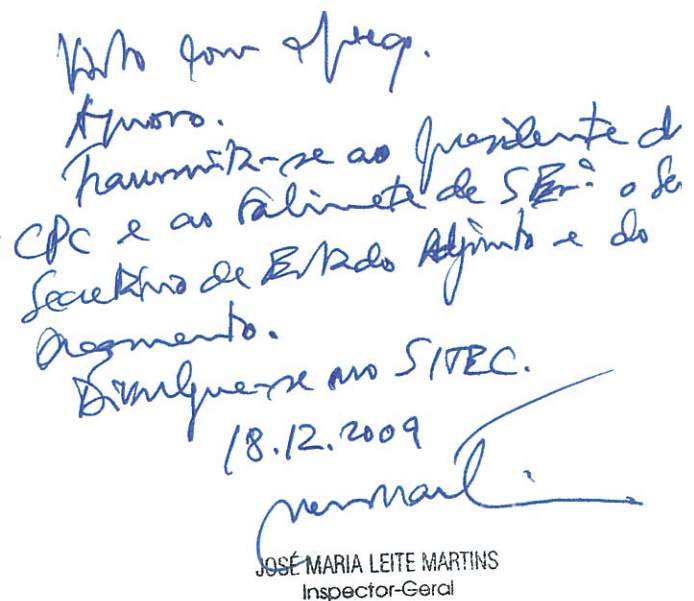 Visto com apreço.
Aprovo.
Transmita-se ao Presidente d
CPC e ao Gabinete de S Exª. o Se
Secretário de Estado Adjunto e do
Orçamento.
Divulgue-se no SITEC.
18.12.2009
JOSÉ MARIA LEITE MARTINS
Inspector-Geral